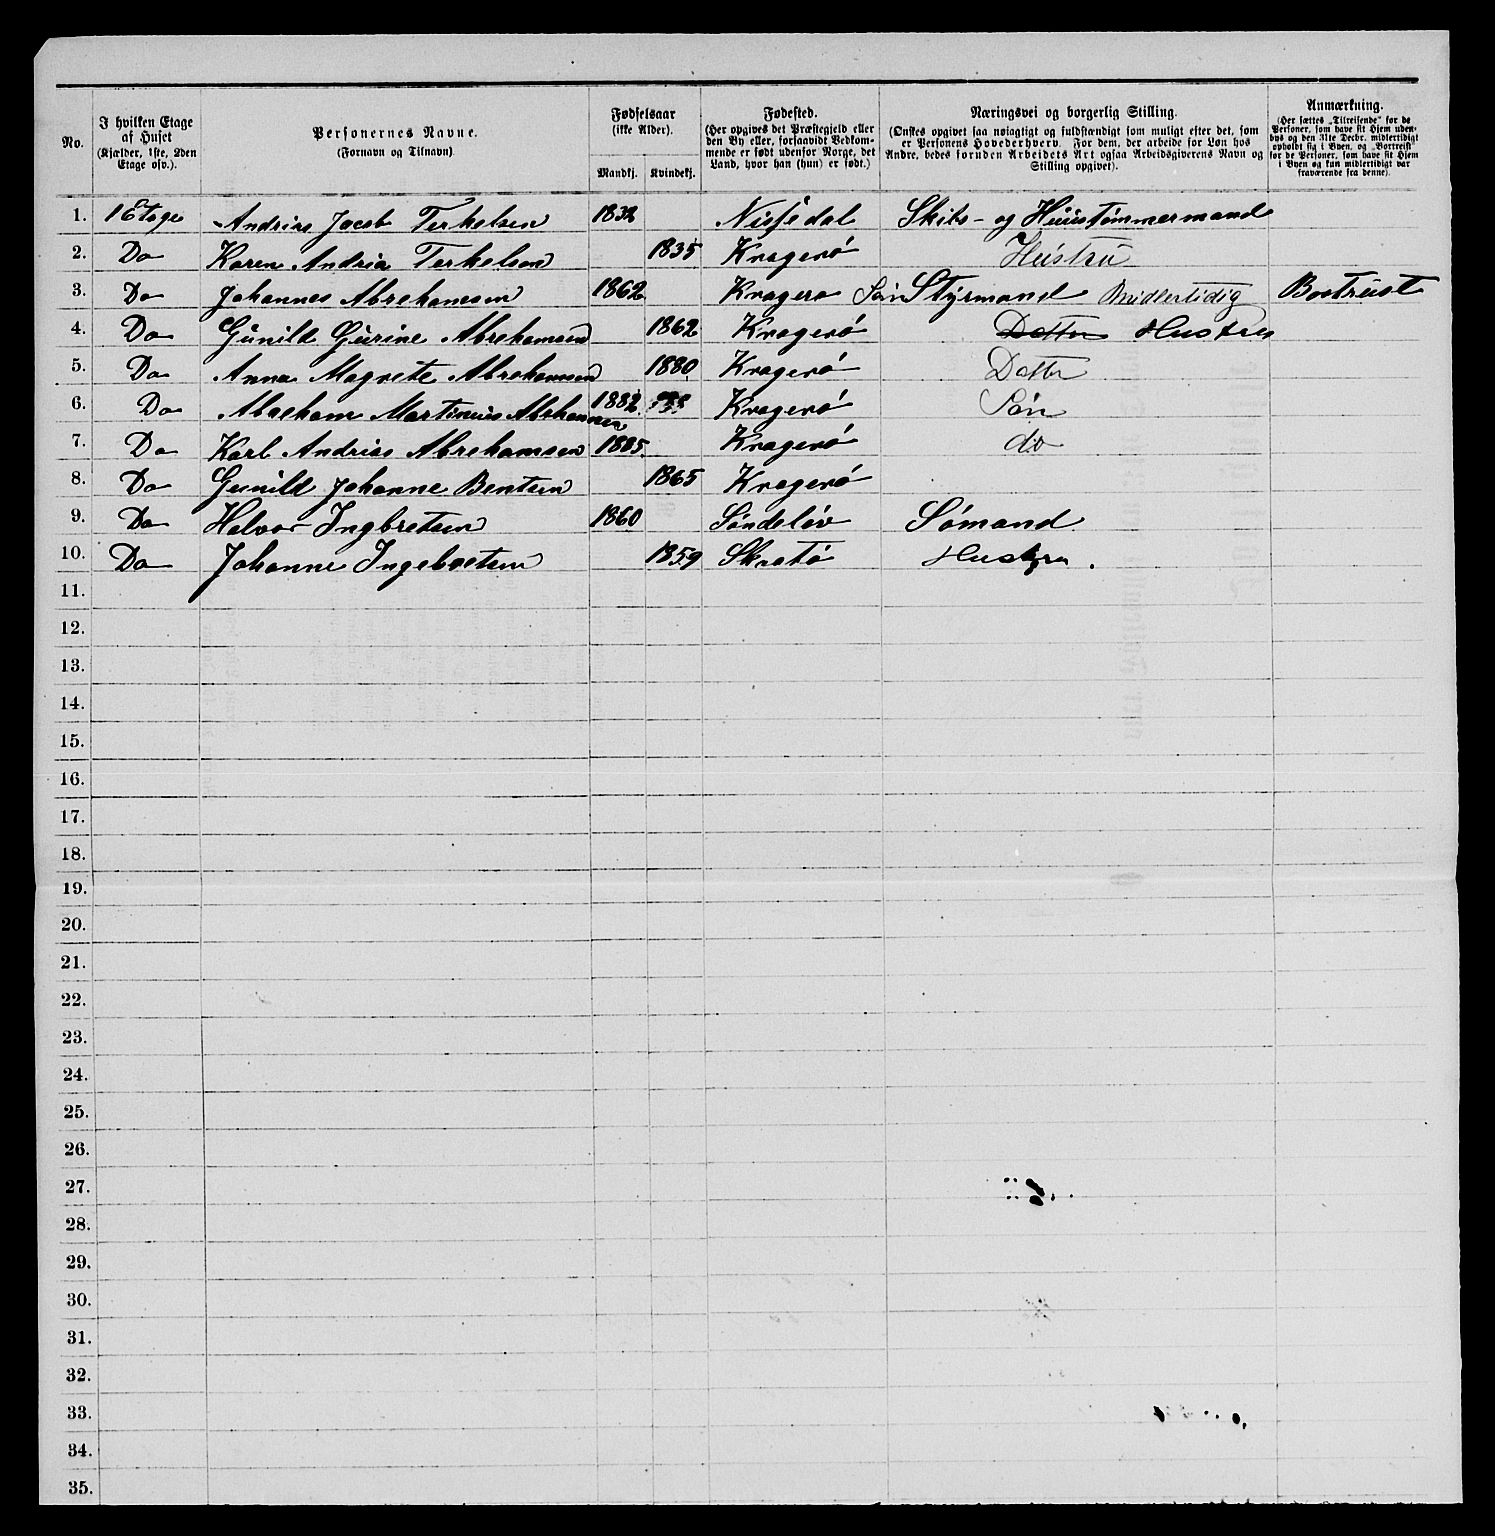 No. | I hvilken Etage af Huset (Kjælder, 1ste, 2den Etage osv.). | Personernes Navne. (Fornavn og Tilnavn) | Fødselsaar (ikke Alder). Mandkj. | Kvindekj. | Fødested. (Her opgives det Præstegjeld eller den By eller, forsaavidt Vedkommende er født udenfor Norge, det Land, hvor han (hun) er født.) | Næringsvei og borgerlig Stilling. (Ønskes opgivet saa nøiagtigt og fuldstændigt som muligt efter det, som er Personens Hovederhverv. For dem, der arbeide for Løn hos Andre, bedes foruden Arbeidets Art ogsaa Arbeidsgiverens Navn og Stilling opgivet). | Anmærkning. (Her sættes „Tilreisende" for de Personer, som have sit Hjem udenbys og den 31te Decbr. midlertidigt opholdt sig i Byen, og „Bortreist" for de Personer, som have sit Hjem i Byen og kun midlertidigt var fraværende fra denne).
1. 1 Etage Andrias Jacob Terkelsen 1832 Nissedal Skibs- og Huustømmermand
2. Do Karen Andria Terkelsen 1835 Kragerø Hustru
3. Do Johannes Abrehamsen 1862 Kragerø Søn Styrmand Midlertidig Bortreist
4. Do Gunild Gurine Abrehamsen 1862 Kragerø Datter Hustru
5. Do Anna Magrete Abrehamsen 1880 Kragerø Datter
6. Do Abraham Martinius Abrhamsen 1882 Kragerø Søn
7. Do Karl Andrias Abrehamsen 1885 Kragerø do
8. Do Gunild Johanne Bentsen 1865 Kragerø
9. Do Halvor Ingbretsen 1860 Søndeløv Sømand
10. Do Johanne Ingebretsen 1859 Skratø Hustru.
11.
12.
13.
14.
15.
16.
17.
18.
19.
20.
21.
22.
23.
24.
25.
26.
27.
28.
29.
30.
31.
32.
33.
34.
35.